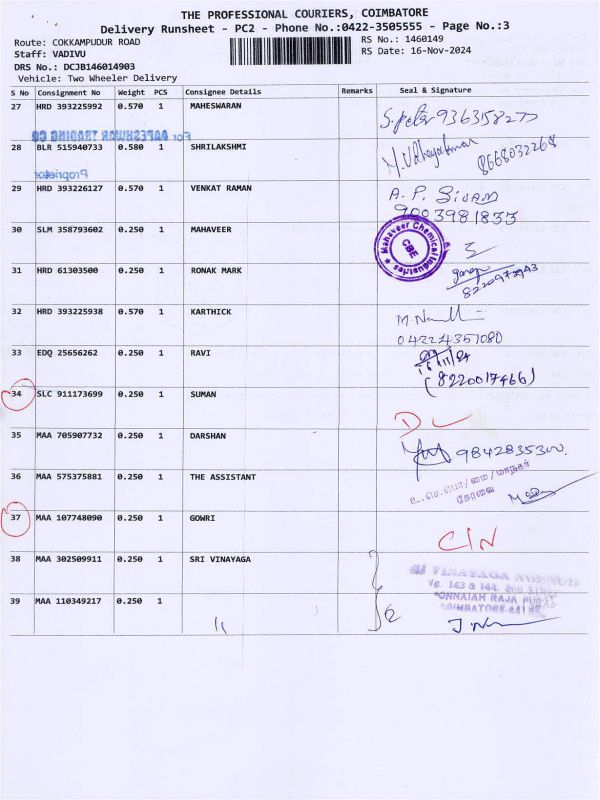 THE PROFESSIONAL COURIERS, COIMBATORE
Delivery Runsheet - PC2 - Phone No.:0422-3505555 - Page No.:3
Route: COKKAMPUDUR ROAD
Staff: VADIVU
DRS No.: DCJB146014903
Vehicle: Two Wheeler Delivery
RS No.: 1460149
RS Date: 16-Nov-2024
S No Consignment No Weight PCS Consignee Details Remarks Seal & Signature
27 HRD 393225992 0.570 1 MAHESWARAN
For RAPESHWAR TRADING CO
28 BLR 515940733 0.580 1 SHRILAKSHMI 8668032268
Proprietor
29 HRD 393226127 0.570 1 VENKAT RAMAN A. P. Sivam
9003981833
30 SLM 358793602 0.250 1 MAHAVEER Mahaveer Chemical Industries CBE
31 HRD 61303500 0.250 1 RONAK MARK
32 HRD 393225938 0.570 1 KARTHICK
04224351080
33 EDQ 25656262 0.250 1 RAVI 16/11/24
(8220017466)
34 SLC 911173699 0.250 1 SUMAN
DL
35 MAA 705907732 0.250 1 DARSHAN 9842835300.
36 MAA 575375881 0.250 1 THE ASSISTANT
கோவை
37 MAA 107748090 0.250 1 GOWRI
C/N
38 MAA 302509911 0.250 1 SRI VINAYAGA
39 MAA 110349217 0.250 1 " 2